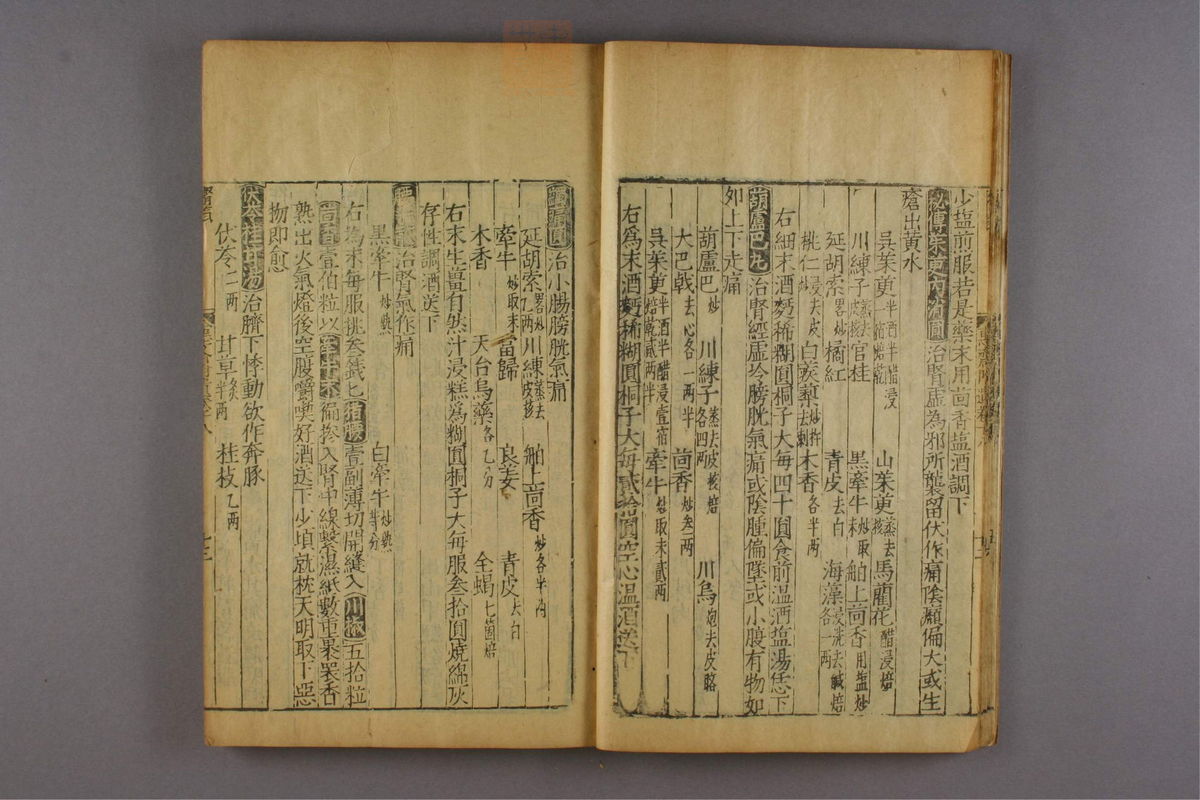 少塩煎服若是藥末用茴香塩酒調下
秘傳朱 内消圓 治腎虛為邪所襲留伏作痛陰㿗偏大或生
瘡出黃水
吳茱萸 半酒半醋浸一宿焙乾 山茱萸 蒸去核 馬藺花 醋浸焙
川練子 蒸去皮核 官桂 黑牽牛 炒取末 舶上茴香 用塩炒
延胡索 畧炒 橘紅 青皮 去白 海藻 浸洗去鹹各一兩
桃仁 浸去皮炒 白蒺藜 炒杵去刺 木香 各半兩
右細末酒麪稀糊圓桐子大每四十圓食前温酒塩湯恁下
葫蘆巴丸 治腎經虛冷膀胱氣痛或陰腫偏墜或小腹有物如
夘上下走痛
葫蘆巴 炒 川練子 蒸去皮核焙各四兩 川烏 炮去皮臍
大巴戟 去心各一兩半 茴香 炒叁兩
吳茱萸 半酒半醋浸壹宿焙乾貳兩半 牽牛 炒取末貳兩
右為末酒麪稀糊圓桐子大每貳拾圓空心温酒送下
圓 治小腸膀胱氣痛
延胡索 畧炒乙兩 川練 蒸去皮核 舶上茴香 炒各半兩
牽牛 炒取末 當歸 良姜 青皮 去白
木香 天台烏藥 各乙分 全蝎 七箇焙
右末生薑自然汁浸糕為糊圓桐子大每服叁拾圓燒綿灰
存性調酒送下
治腎氣作痛
黑牽牛 炒熟 白牽牛 炒熟等分
右為末每服挑叁錢匕猪腰壹副薄切開縫入川椒五拾粒
茴香壹伯粒以牽牛末徧摻入腎中線繫濕紙數重裹煨香
熟出火氣燈後空腹嚼喫好酒送下少頃就枕天明取下惡
物即愈
伏苓桂甘湯 治臍下悸動欲作奔豚
伏苓 二兩 甘草 炙半兩 桂枝 乙兩